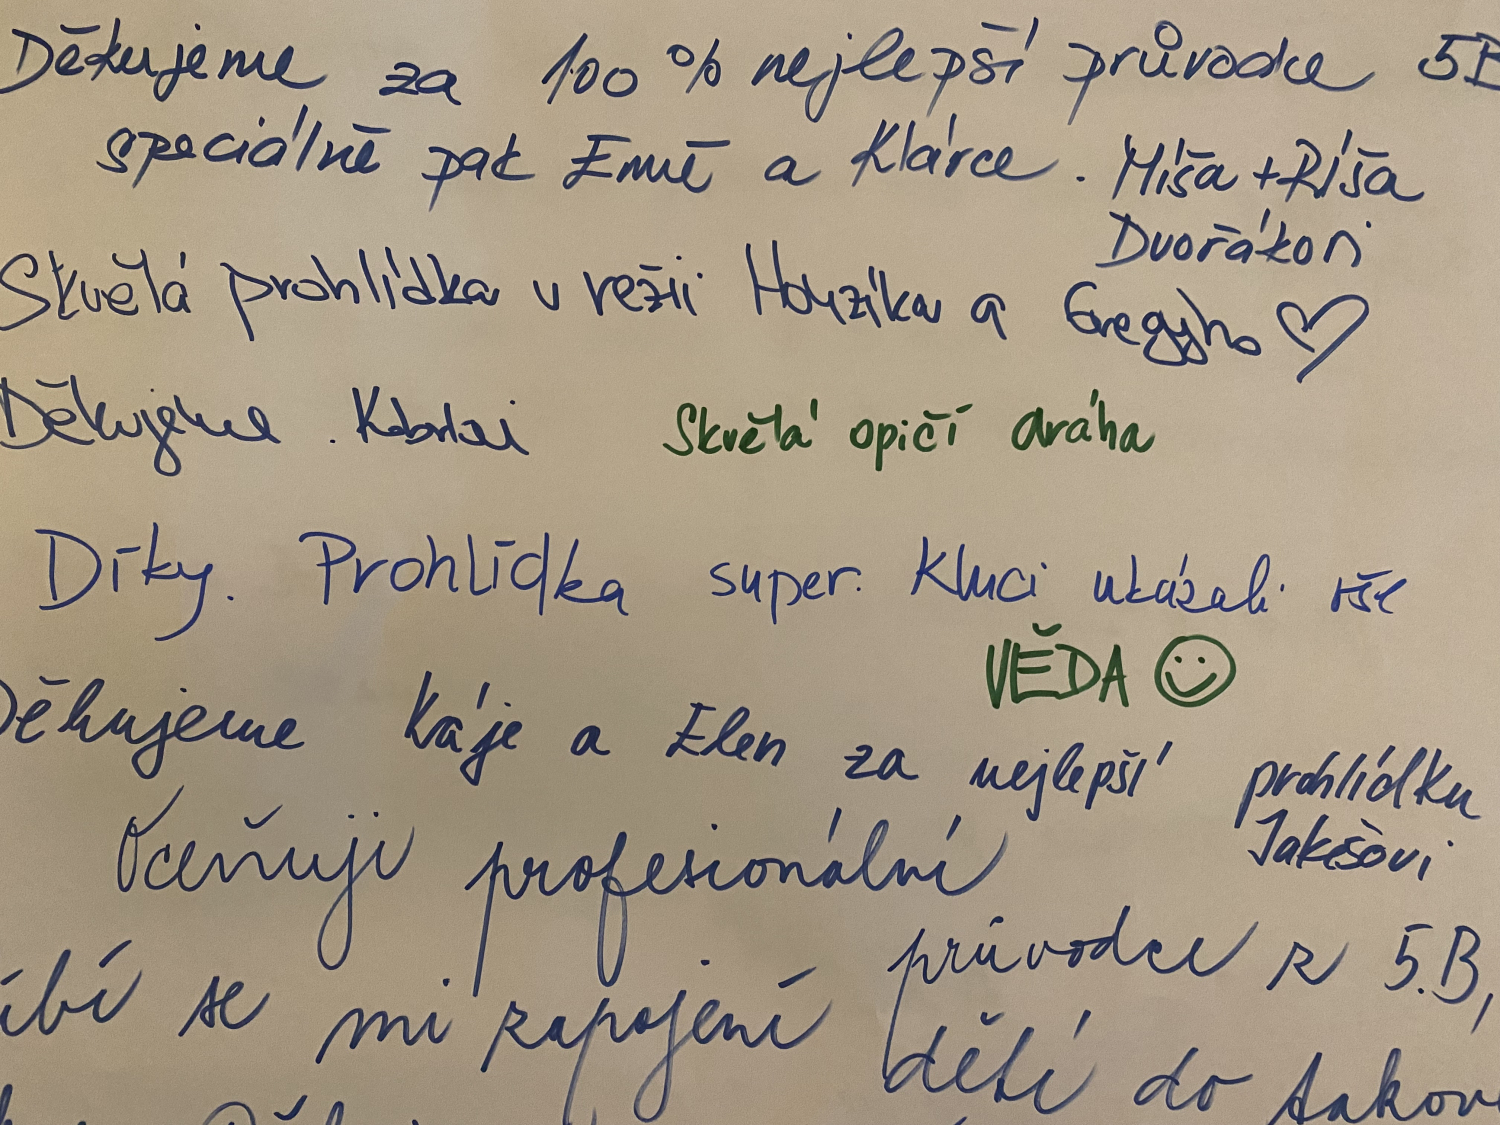 Děkujeme za 100 % nejlepší průvodce 5B
speciálně pak Emě a Klárce. Míša + Ríša
Dvořákovi
Skvělá prohlídka v režii Honzíka a Gregyho ♡
Děkujeme.
Skvělá opičí dráha
Díky. Prohlídka super. Kluci ukázali vše
VĚDA ☺
Děkujeme Káje a Elen za nejlepší prohlídku
Jakešovi
Oceňuji profesionální
průvodce z 5.B,
íbí se mi zapojení
dětí do takov